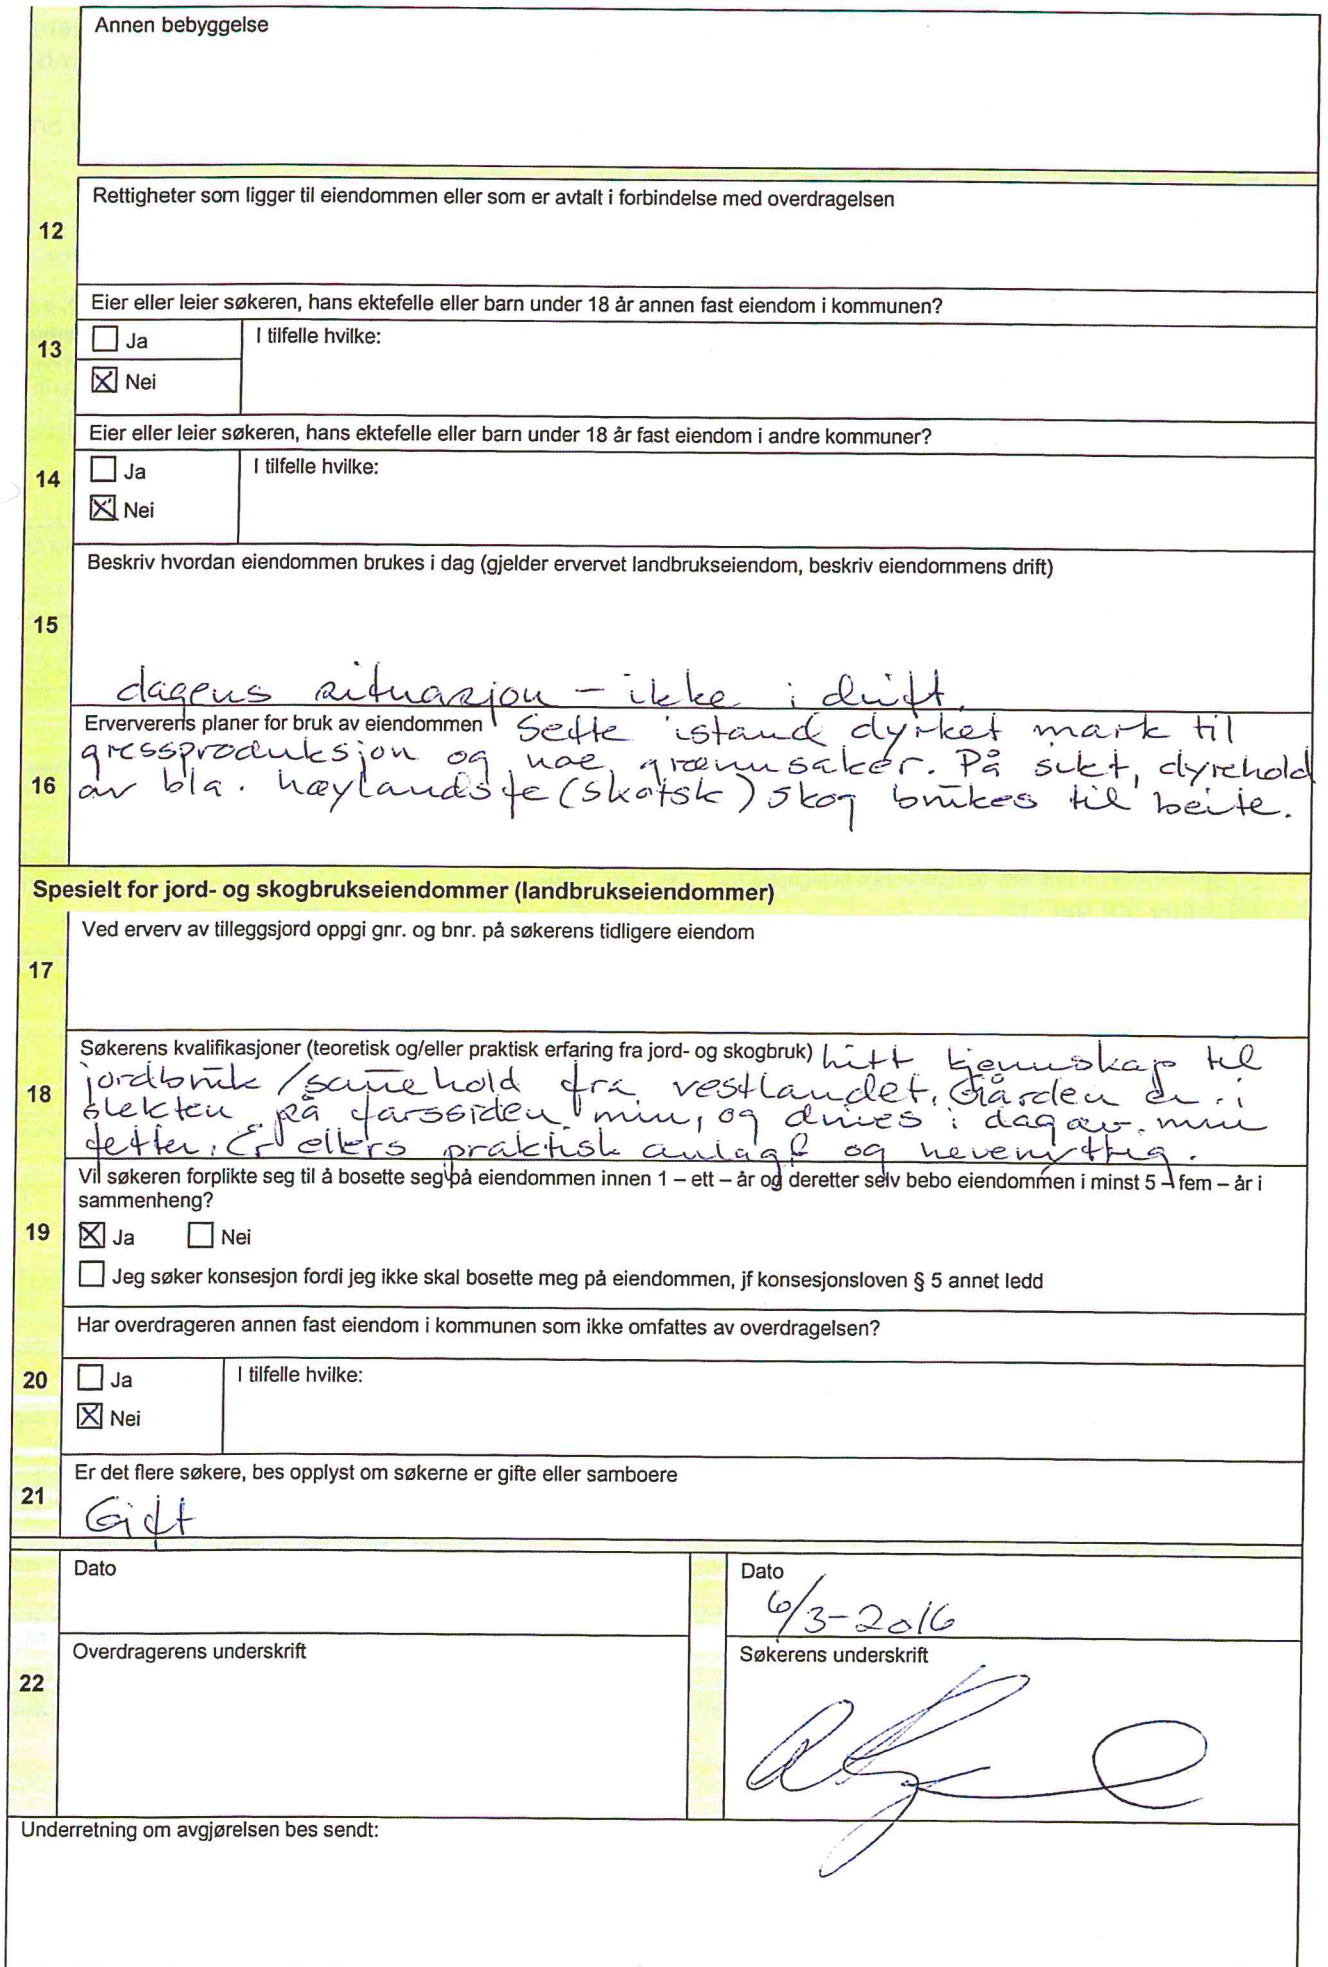 Annen bebyggelse
12
Rettigheter som ligger til eiendommen eller som er avtalt i forbindelse med overdragelsen
Eier eller leier søkeren, hans ektefelle eller barn under 18 år annen fast eiendom i kommunen?
13
Ja
I tilfelle hvilke:
Nei
Eier eller leier søkeren, hans ektefelle eller barn under 18 år fast eiendom i andre kommuner?
14
Ja
I tilfelle hvilke:
Nei
Beskriv hvordan eiendommen brukes i dag (gjelder ervervet landbrukseiendom, beskriv eiendommens drift)
15
dagens situasjon - ikke i drift.
Erververens planer for bruk av eiendommen Sette istand dyrket mark til
gressproduksjon og noe grønnsaker. På sikt, dyrehold
16
av bla. høylandsfe (skotsk) skog brukes til beite.
Spesielt for jord- og skogbrukseiendommer (landbrukseiendommer)
Ved erverv av tilleggsjord oppgi gnr. og bnr. på søkerens tidligere eiendom
17
Søkerens kvalifikasjoner (teoretisk og/eller praktisk erfaring fra jord- og skogbruk) Litt kjennskap til
jordbruk / sauehold fra vestlandet. Gården er i
18
slekten på farssiden min, og drives i dag av min
fetter. Er ellers praktisk anlagt og nevenyttig.
Vil søkeren forplikte seg til å bosette seg på eiendommen innen 1 – ett – år og deretter selv bebo eiendommen i minst 5 – fem – år i
sammenheng?
19
Ja Nei
Jeg søker konsesjon fordi jeg ikke skal bosette meg på eiendommen, jf konsesjonsloven § 5 annet ledd
Har overdrageren annen fast eiendom i kommunen som ikke omfattes av overdragelsen?
20
Ja
I tilfelle hvilke:
Nei
Er det flere søkere, bes opplyst om søkerne er gifte eller samboere
21
Gift
Dato
Dato
6/3-2016
Overdragerens underskrift
Søkerens underskrift
22
Underretning om avgjørelsen bes sendt: